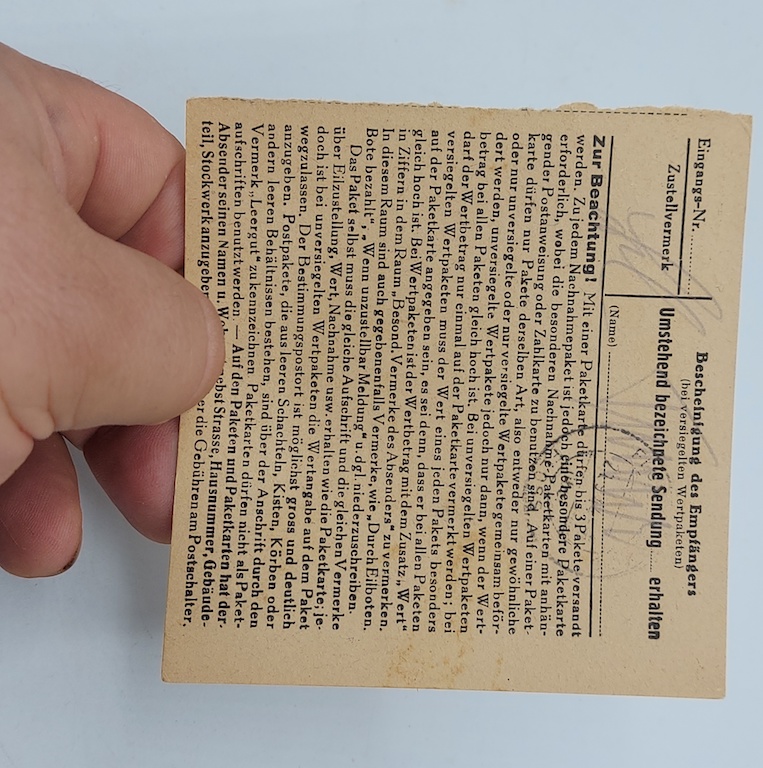 Eingangs-Nr.
Zustellvermerk
Bescheinigung des Empfängers
(bei versiegelten Wertpaketen)
Umstehend bezeichnete Sendung ..... erhalten
(Name)
Zur Beachtung! Mit einer Paketkarte dürfen bis 3 Pakete versandt
werden. Zu jedem Nachnahmepaket ist jedoch eine besondere Paketkarte
erforderlich, wobei die besonderen Nachnahme-Paketkarten mit anhän-
gender Postanweisung oder Zahlkarte zu benutzen sind. Auf einer Paket-
karte dürfen nur Pakete derselben Art, also entweder nur gewöhnliche
oder nur unversiegelte oder nur versiegelte Wertpakete gemeinsam beför-
dert werden, unversiegelte Wertpakete jedoch nur dann, wenn der Wert-
betrag bei allen Paketen gleich hoch ist. Bei unversiegelten Wertpaketen
darf der Wertbetrag nur einmal auf der Paketkarte vermerkt werden; bei
versiegelten Wertpaketen muss der Wert eines jeden Pakets besonders
auf der Paketkarte angegeben sein, es sei denn, dass er bei allen Paketen
gleich hoch ist. Bei Wertpaketen ist der Wertbetrag mit dem Zusatz „Wert“
in Ziffern in dem Raum „Besond. Vermerke des Absenders“ zu vermerken.
In diesem Raum sind auch gegebenenfalls Vermerke, wie „Durch Eilboten.
Bote bezahlt“, „Wenn unzustellbar Meldung“ u. dgl. niederzuschreiben.
Das Paket selbst muss die gleiche Aufschrift und die gleichen Vermerke
über Eilzustellung, Wert, Nachnahme usw. erhalten wie die Paketkarte; je-
doch ist bei unversiegelten Wertpaketen die Wertangabe auf dem Paket
wegzulassen. Der Bestimmungspostort ist möglichst gross und deutlich
anzugeben. Postpakete, die aus leeren Schachteln, Kisten, Körben oder
andern leeren Behältnissen bestehen, sind über der Anschrift durch den
Vermerk „Leergut“ zu kennzeichnen. Paketkarten dürfen nicht als Paket-
aufschriften benutzt werden. — Auf den Paketen und Paketkarten hat der
Absender seinen Namen u. Strasse, Hausnummer, Gebäude-
teil, Stockwerk die Gebühren am Postschalter.